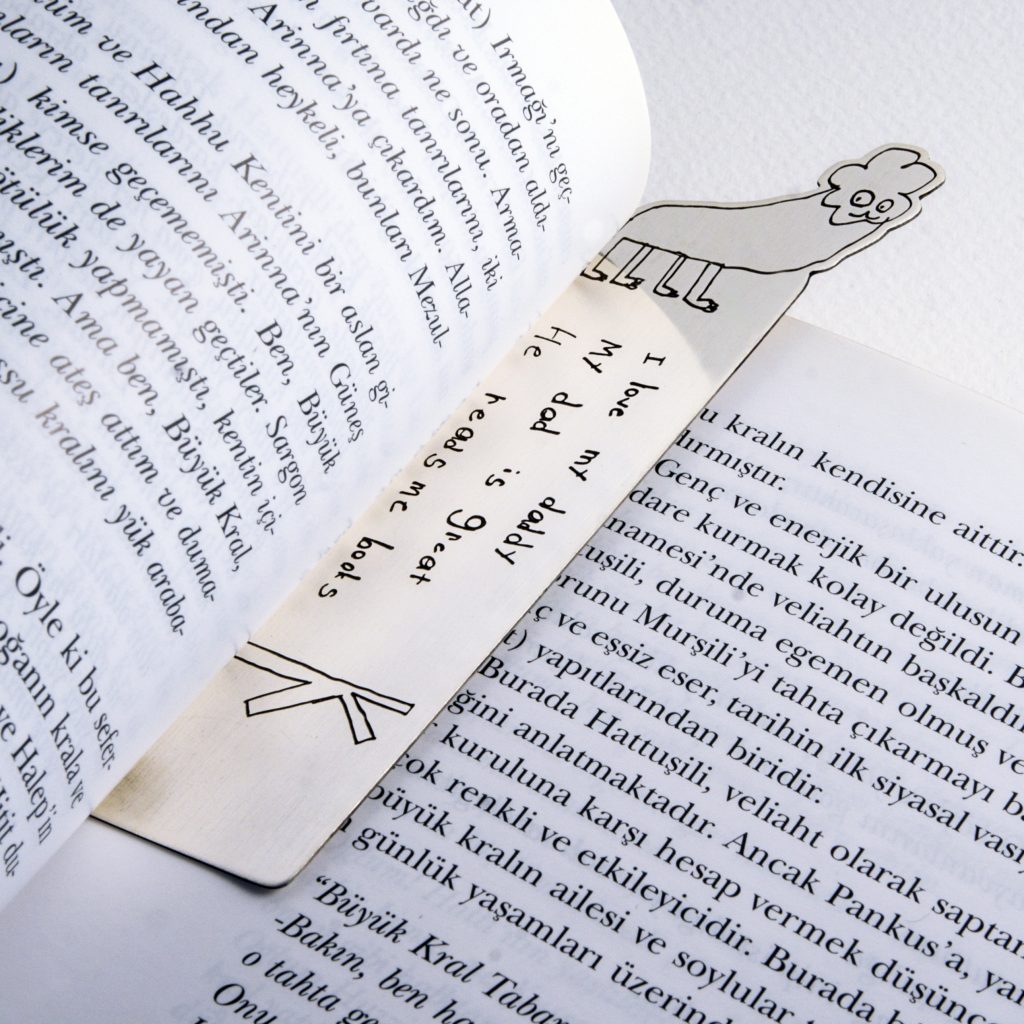 t) Irmağı'nı geç-
ğdı ve oradan aldı-
vardı ne sonu. Arma-
fırtına tanrılarını, iki
Arinna'ya çıkardım. Alla-
ından heykeli, bunları Mezul-
üm ve Hahhu Kentini bir aslan gi-
ların tanrılarını Arinna'nın Güneş
kimse geçememişti. Ben, Büyük
iklerim de yayan geçtiler. Sargon
ötülük yapmamıştı, kentin içi-
ıştı. Ama ben, Büyük Kral,
cine ateş attım ve duma-
ssu kralını yük araba-
Öyle ki bu sefer-
oğanın krala ve
ve Halep'in
I love my daddy
My dad is great
He reads me books
u kralın kendisine aittir.
dırmıştır.
Genç ve enerjik bir ulusun
dare kurmak kolay değildi. B
namesi'nde veliahtın başkaldı
uşili, duruma egemen olmuş ve
orunu Murşili'yi tahta çıkarmayı b
ç ve eşsiz eser, tarihin ilk siyasal vasi
t) yapıtlarından biridir.
Burada Hattuşili, veliaht olarak saptan
ğini anlatmaktadır. Ancak Pankus'a, ya
kuruluna karşı hesap vermek düşünc
çok renkli ve etkileyicidir. Burada b
büyük kralın ailesi ve soylular t
günlük yaşamları üzerind
"Büyük Kral Tabar
-Bakın, ben ha
o tahta ge
Onu